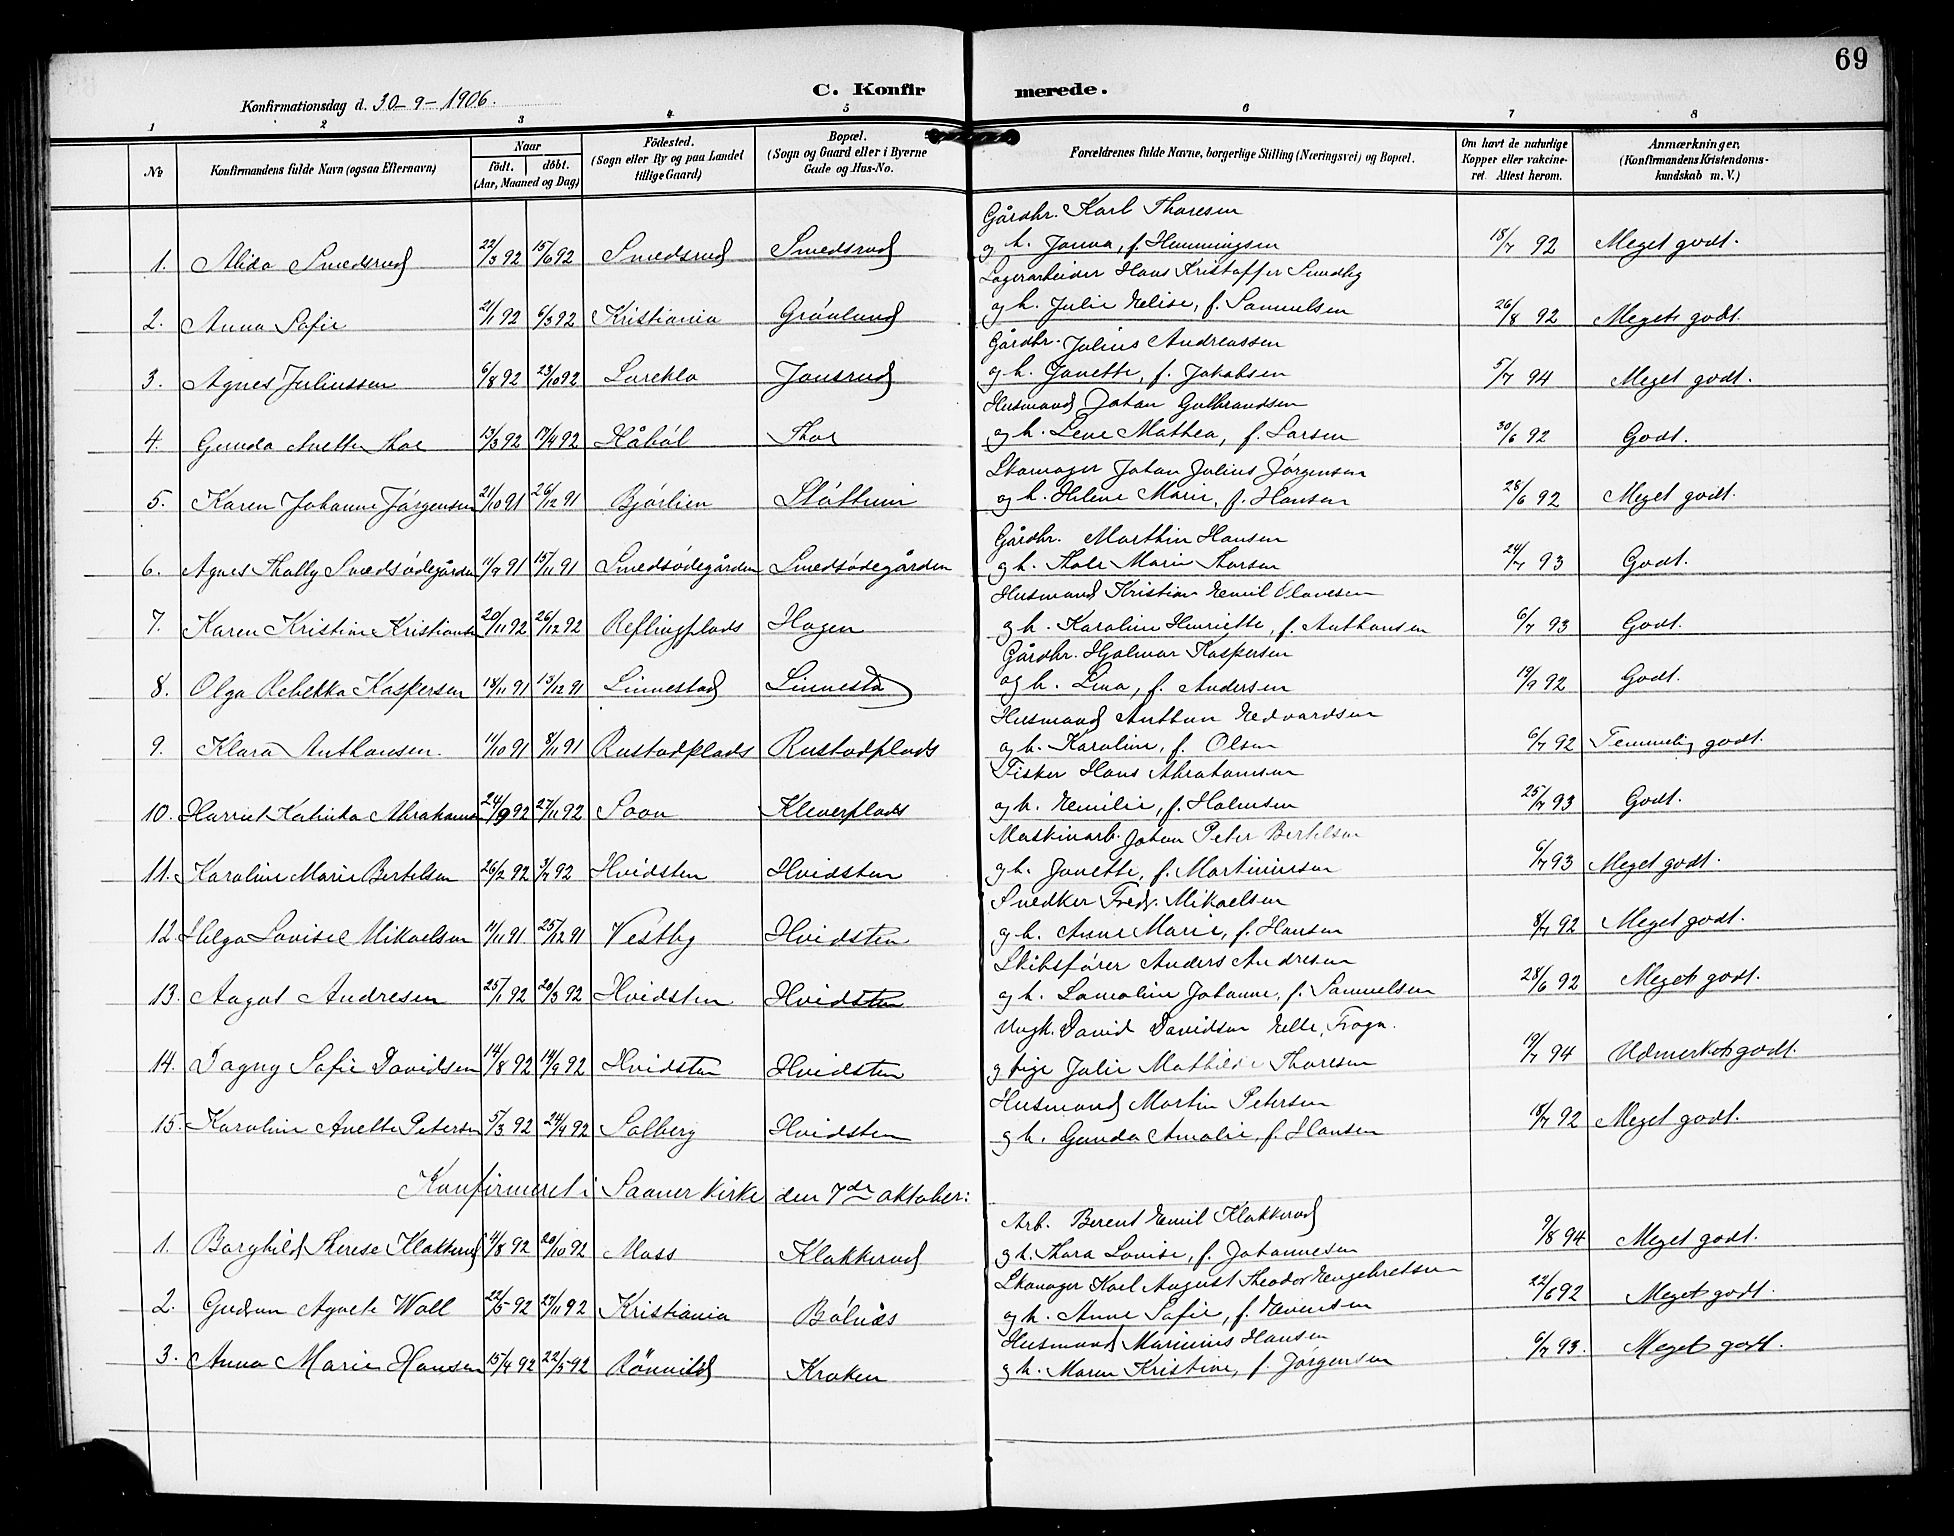 69
Konfirmationsdag d. 30-9-1906.
C. Konfir merede.
1 2 3 4 5 6 7 8
No
Konfirmandens fulde Navn (ogsaa Efternavn)
Naar
født. døbt.
(Aar, Maaned og Dag)
Födested.
(Sogn eller By og paa Landet
tillige Gaard)
Bopæl.
(Sogn og Gaard eller i Byerne
Gade og Hus-No.
Forældrenes fulde Navne, borgerlige Stilling (Næringsvei) og Bopæl.
Om havt de naturlige
Kopper eller vakcine-
ret. Attest herom.
Anmærkninger,
(Konfirmandens Kristendoms-
kundskab m. V.)
Gårdbr. Karl Thoresen
1. Alida Smedsrud 22/3 92 15/6 92 Smedsrud Smedsrud og h. Janna, f. Hemmingsen 18/7 92 Meget godt.
Lagerarbeider Hans Kristoffer Sundby
2. Anna Sofie 21/1 92 6/3 92 Kristiania Grønlund og h. Julie Elise, f. Samuelsen 26/8 92 Meget godt.
Gårdbr. Julius Andreassen
3. Agnes Juliussen 6/8 92 23/10 92 Jansrud og h. Janette, f. Jakobsen 5/7 94 Meget godt.
Husmand Johan Gulbrandsen
4. Gunda Anette Thoe 13/3 92 17/4 92 Håbøl Thoe og h. Lene Mathea, f. Larsen 30/6 92 Godt.
Skomager Johan Julius Jørgensen
5. Karen Johanne Jørgensen 21/10 91 26/12 91 Bjørlien Støttum og h. Helene Marie, f. Hansen 28/6 92 Meget godt.
Gårdbr. Marthin Hansen
6. Agnes Tholly Smedsødegården 11/9 91 15/11 91 Smedsødegården Smedsødegården og h. Thale Marie Thorsen 24/7 93 Godt.
Husmand Kristian Emil Olavesen
7. Karen Kristine Kristiansen 20/11 92 26/12 92 Reflingplads Hagen og h. Karoline Henriette, f. Anthonsen 6/7 93 Godt.
Gårdbr. Hjalmar Kaspersen
8. Olga Rebekka Kaspersen 18/11 91 13/12 91 Linnestad Linnestad og h. Lina, f. Andersen 19/9 92 Godt.
Husmand Anthon Edvardsen
9. Klara Anthonsen. 11/10 91 8/11 91 Rustadplads Rustadplads og h. Karoline, f. Olsen 6/7 92 Temmelig godt.
Fisker Hans Abrahamsen
10. Harriet Katinka Abrahamsen 24/9 92 27/11 92 Soon Kleverplads og h. Emilie, f. Halvorsen 25/7 93 Godt.
Maskinarb. Johan Peter Bertelsen
11. Karoline Marie Bertelsen 26/2 92 3/7 92 Hvidsten Hvidsten og h. Janette, f. Martiniusen 6/7 93 Meget godt.
Snedker Fredr. Mikaelsen
12. Helga Lovise Mikaelsen 11/11 91 25/12 91 Vestby Hvidsten og h. Anne Marie, f. Hansen 8/7 92 Meget godt.
Skibsfører Anders Andresen
13. Aagot Andresen 25/1 92 20/3 92 Hvidsten Hvidsten og h. Johanne, f. Samuelsen 28/6 92 Meget godt.
Ungk. David Davidsen Elle, Frogn.
14. Dagny Sofie Davidsen 14/8 92 14/9 92 Hvidsten Hvidsten og pige Julie Mathilde Thoresen 19/7 94 Udmerket godt.
Husmand Martin Petersen
15. Karoline Anette Petersen 5/3 92 24/4 92 Solberg Hvidsten og h. Gunda Amalie, f. Hansen 18/7 92 Meget godt.
Konfirmeret i Saaner kirke den 7de oktober:
Arb. Berent Emil Klokkerud
1. Borghild Therese Klokkerud 4/8 92 20/10 92 Moss Klokkerud og h. Thora Lovise, f. Johannesen 9/8 94 Meget godt.
Skomager Karl August Theodor Engebretsen
2. Gudrun Agnete Woll 22/5 92 27/11 92 Kristiania Bølnæs og h. Anne Sofie, f. Evensen 22/6 92 Meget godt.
Husmand Marinius Hansen
3. Anna Marie Hansen 15/4 92 22/5 92 Rønvild Kroken og h. Maren Kristine, f. Jørgensen 6/7 93. Meget godt.